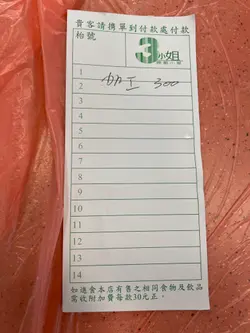 貴客請携單到付款處付款
枱號
3小姐
1
2 加工 300
3
4
5
6
7
8
9
10
11
12
13
14
如進食本店有售之相同食物及飲品
需收附加費每款30元正。